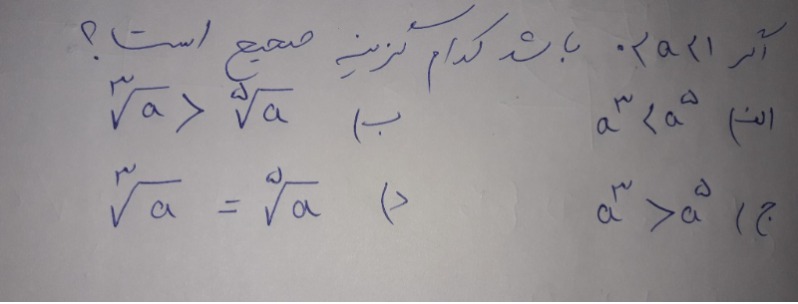 اگر ۰<a<۱ باشد کدام گزینه صحیح است؟
الف) a³<a⁵ ب) ∛a > ⁵√a
ج) a³>a⁵ د) ∛a = ⁵√a